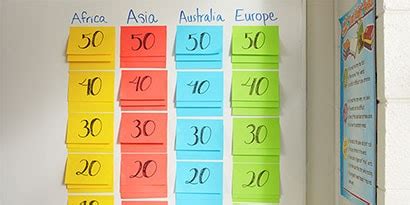 Africa Asia Australia Europe
50 50 50 50
40 40 40 40
30 30 30 30
20 20 20 20